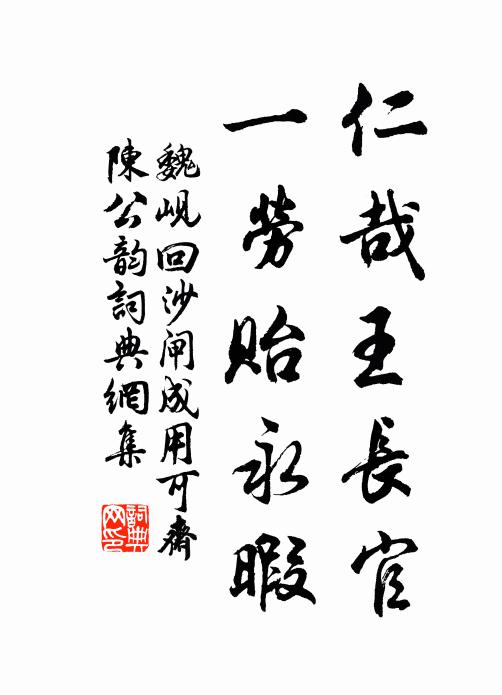 仁哉王長官
一勞貽永暇
魏峴回沙閘成用可齋
陳公韵詞典網集
詞典网印